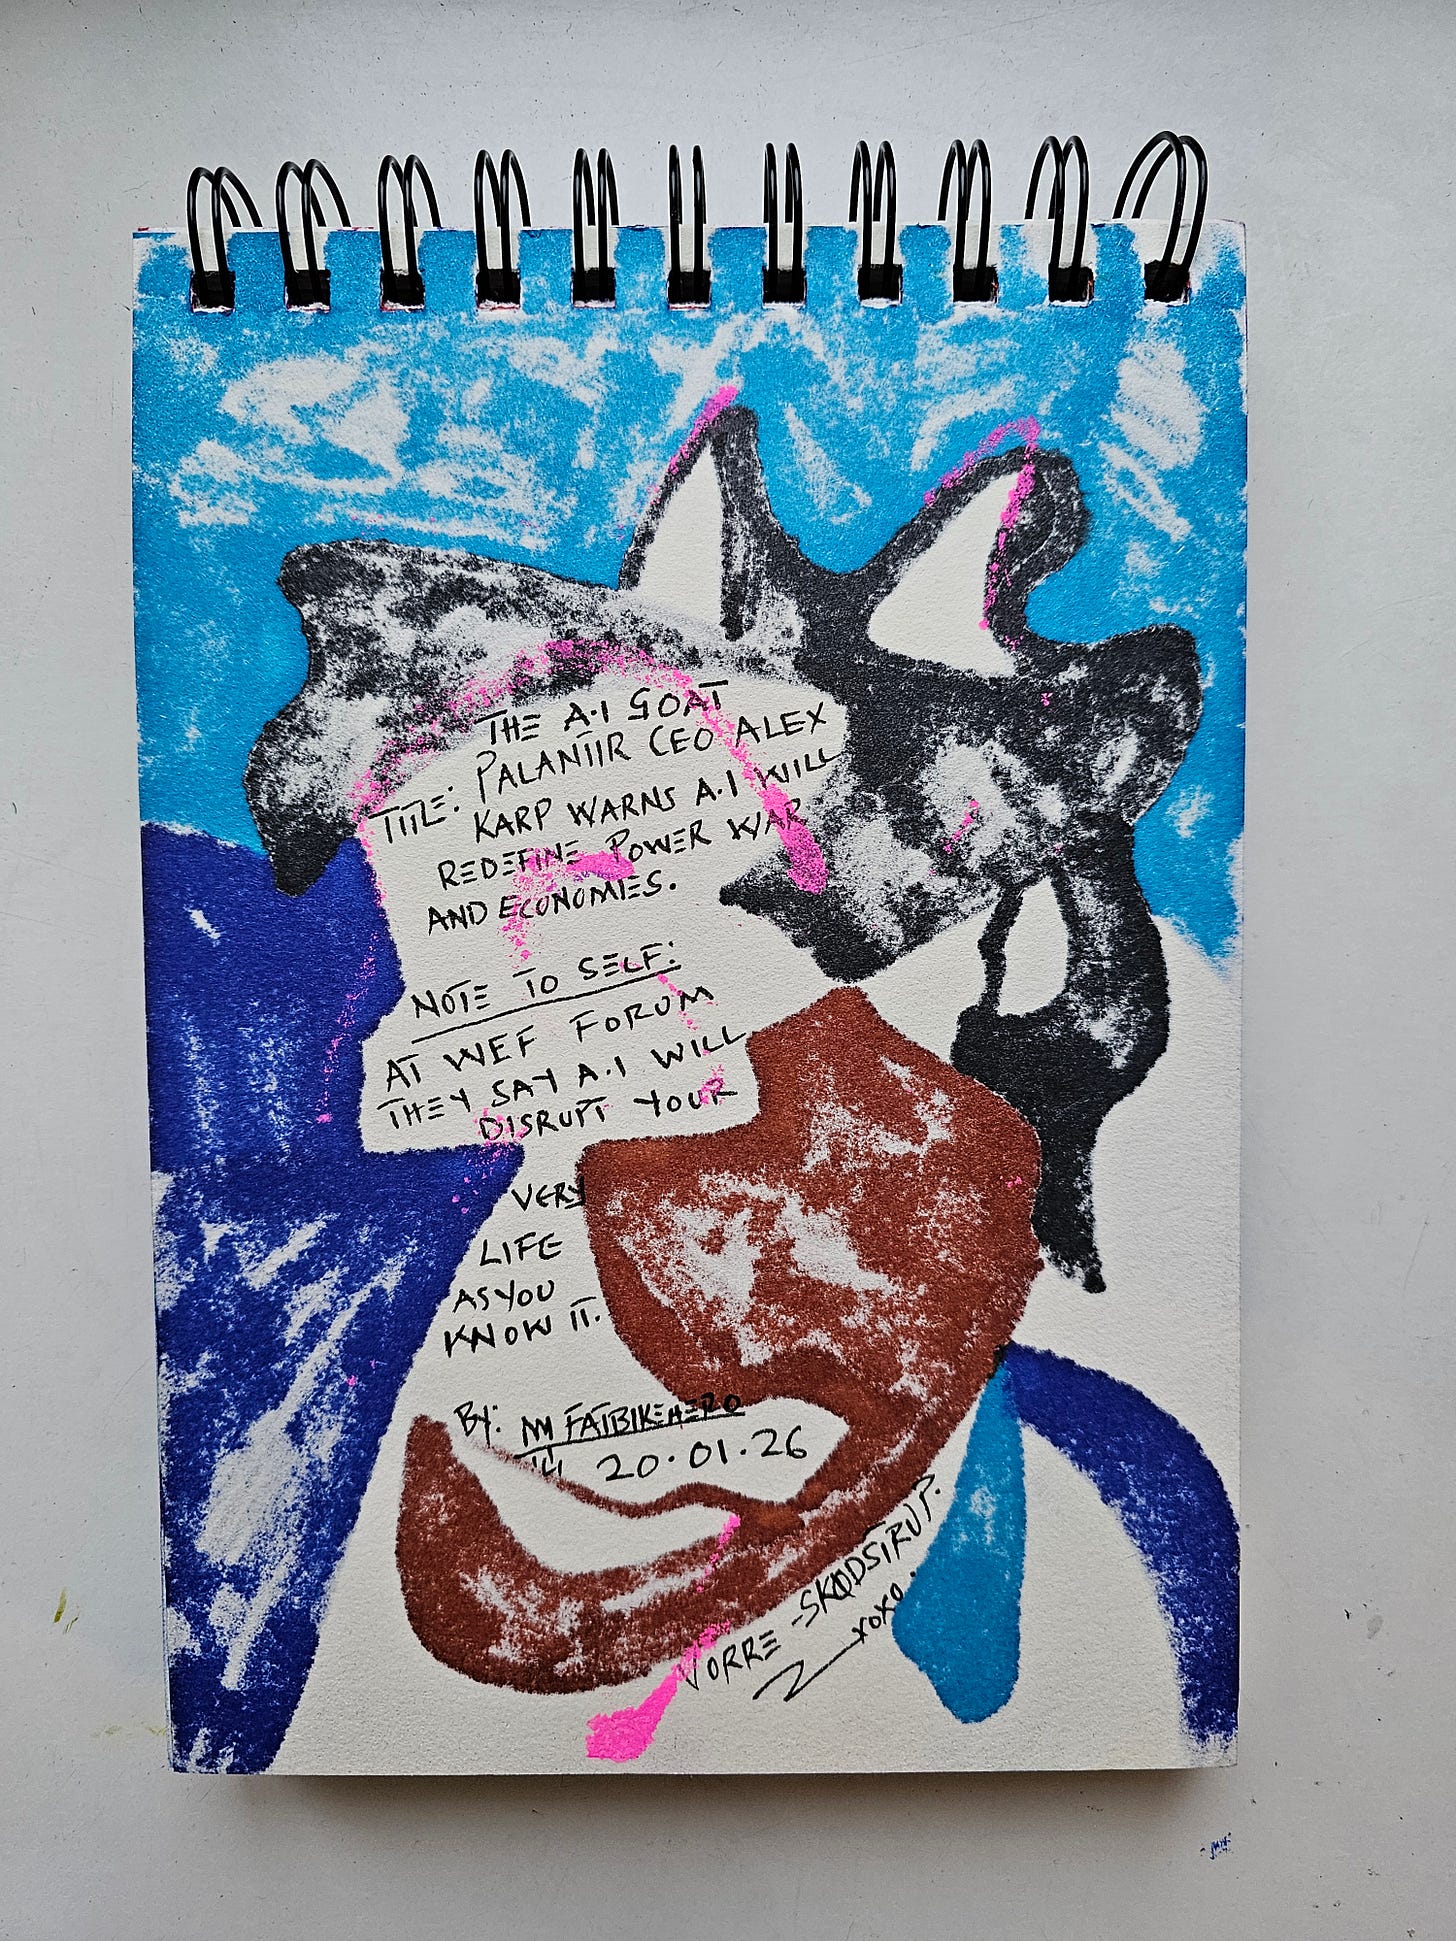 THE A.I GOAT
TITLE: PALANTIR CEO ALEX
KARP WARNS A.I WILL
REDEFINE POWER WAR
AND ECONOMIES.
NOTE TO SELF:
AT WEF FORUM
THEY SAY A.I WILL
DISRUPT YOUR
VERY
LIFE
AS YOU
KNOW IT.
BY: FATBIKEHERO
20.01.26
TORRE-SKØDSTRUP.
XOXO.